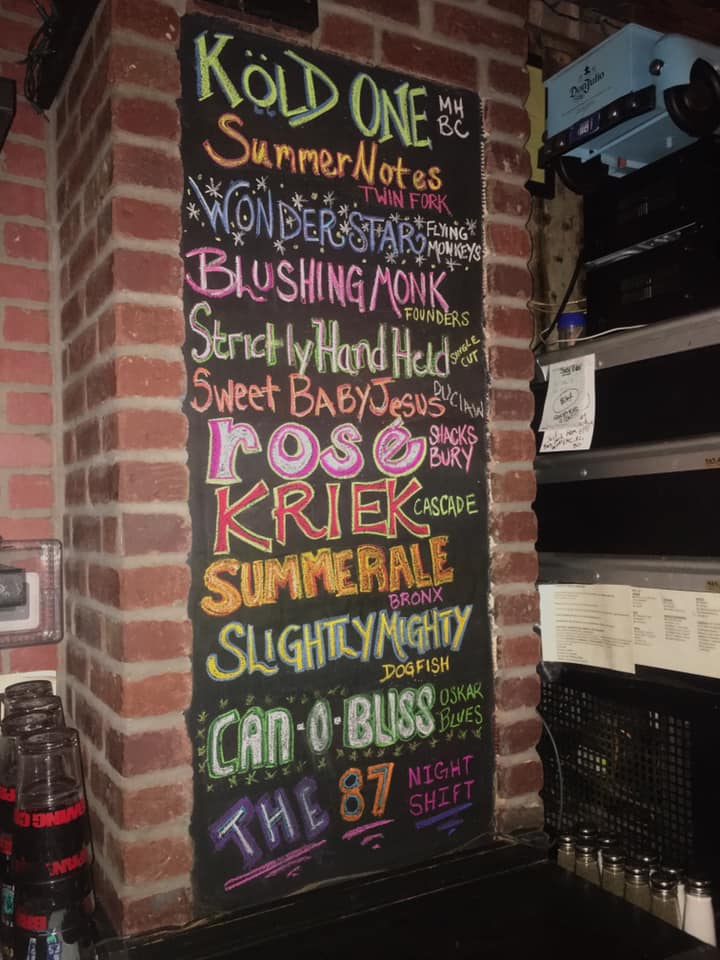 KÖLD ONE MH BC
SummerNotes
TWIN FORK
WONDERSTAR FLYING MONKEYS
BLUSHING MONK
FOUNDERS
Strictly Hand Held SINGLE CUT
Sweet BABY Jesus DUCLAW
rosé SHACKS BURY
KRIEK CASCADE
SUMMERALE
BRONX
SLIGHTLY MIGHTY
DOGFISH
CAN-O-BLISS OSKAR BLUES
THE 87 NIGHT SHIFT
Don Julio